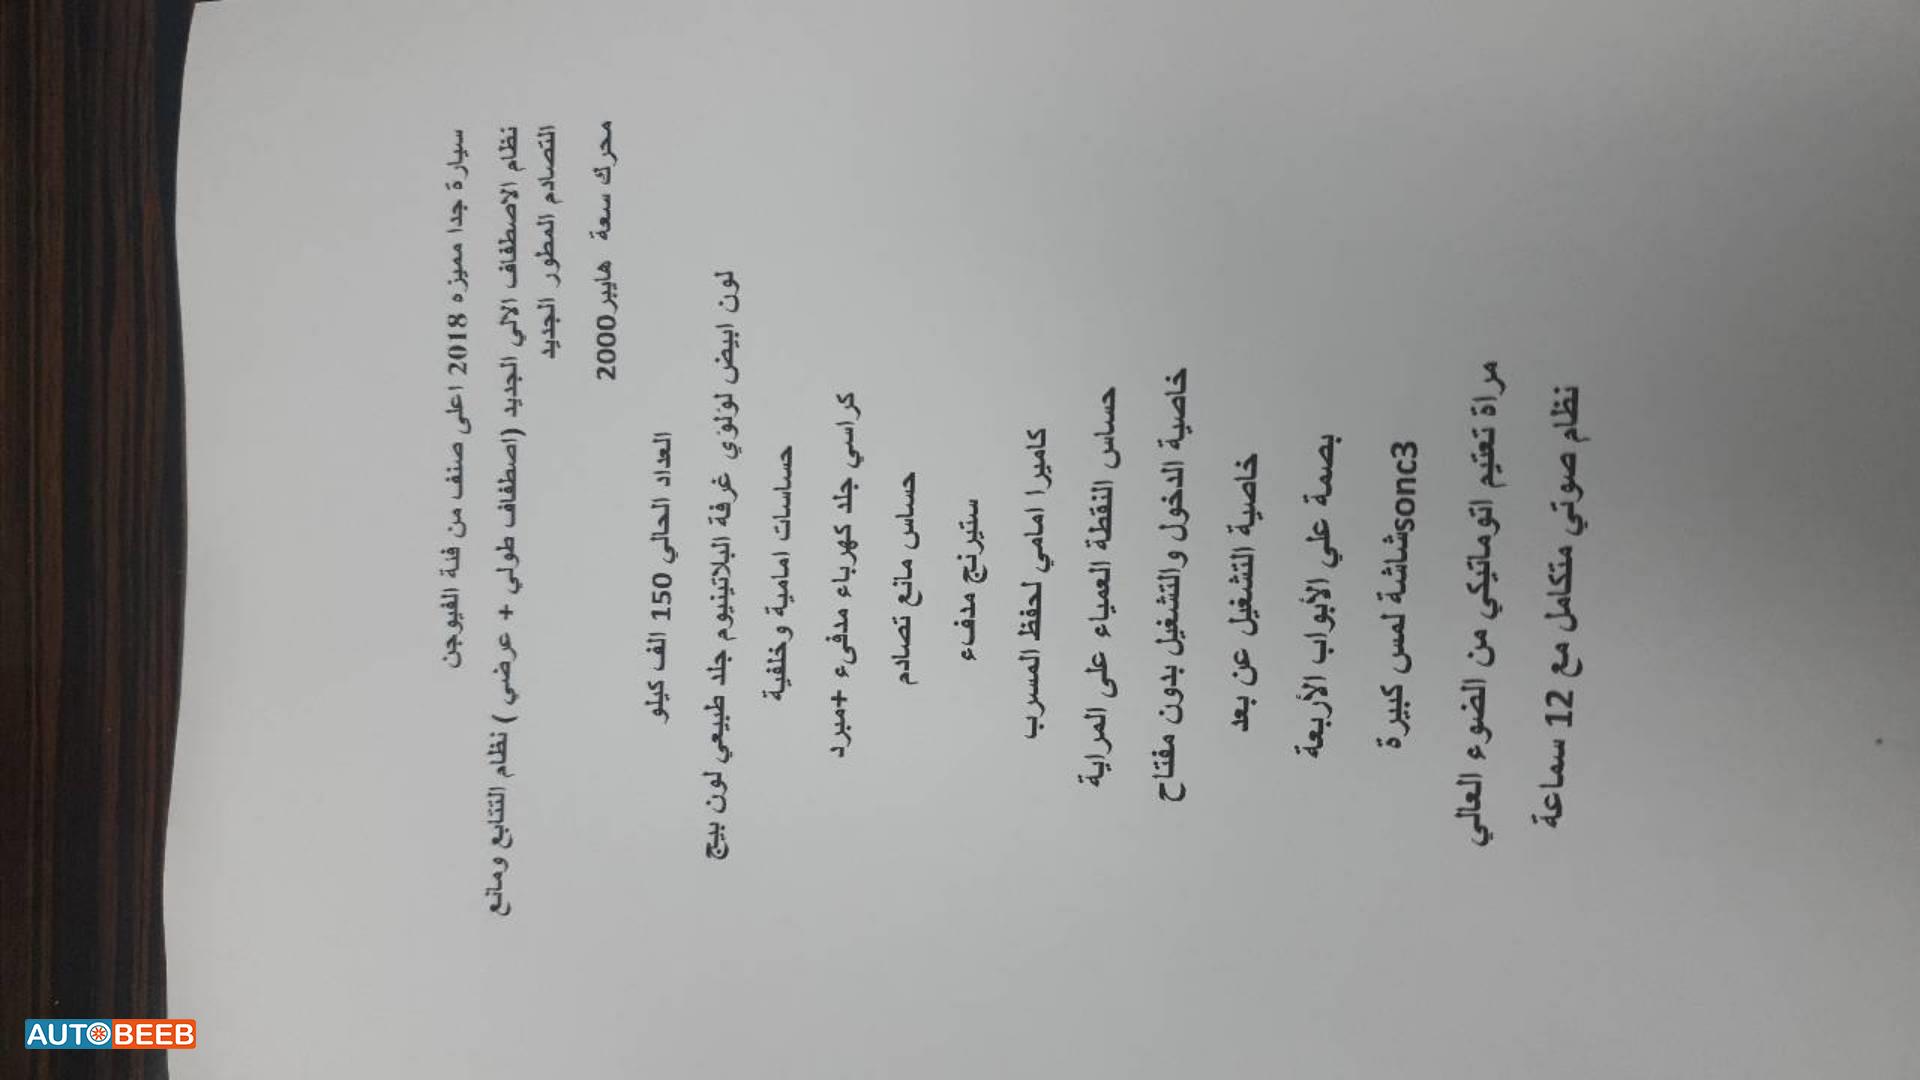 سيارة جدا مميزه 2018 اعلى صنف من فئة الفيوجن
نظام الاصطفاف الالي الجديد (اصطفاف طولي + عرضي ) نظام التتابع ومانع
التصادم المطور الجديد
محرك سعة هايبر2000
العداد الحالي 150 الف كيلو
لون ابيض لؤلؤي غرفة البلاتينيوم جلد طبيعي لون بيج
حساسات امامية وخلفية
كراسي جلد كهرباء مدفىء +مبرد
حساس مانع تصادم
ستيرنج مدفء
كاميرا امامي لحفظ المسرب
حساس النقطة العمياء على المراية
خاصية الدخول والتشغيل بدون مفتاح
خاصية التشغيل عن بعد
بصمة علي الأبواب الأربعة
sonc3شاشة لمس كبيرة
مراة تعتيم اتوماتيكي من الضوء العالي
نظام صوتي متكامل مع 12 سماعة
AUTOBEEB